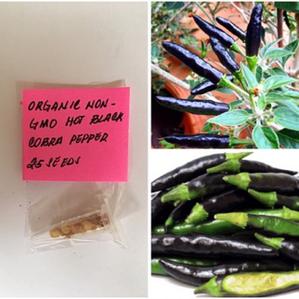 ORGANIC NON-
GMO HOT BLACK
COBRA PEPPER
25 SEEDS